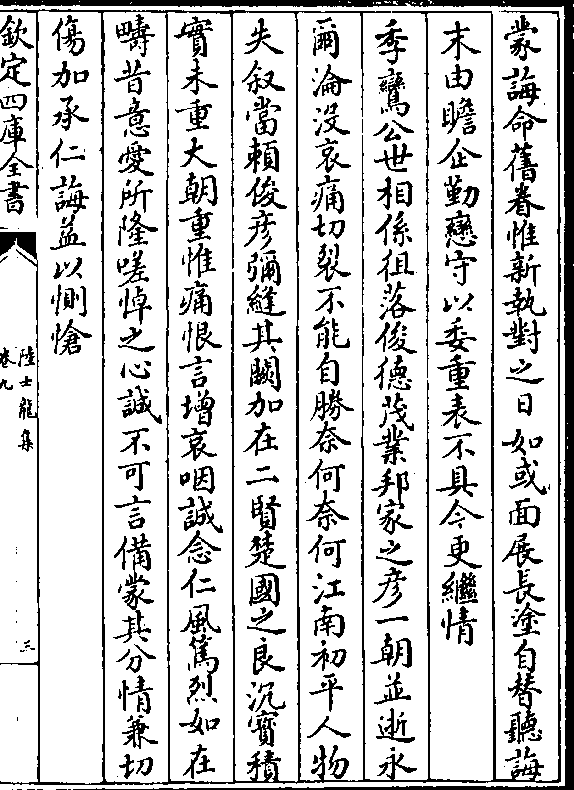 蒙誨命舊眷惟新執對之日如或面展長塗自替聽誨
末由瞻企勤戀守以委重表不具今更繼情
季鸞公世相係徂落俊德茂業邦家之彦一朝並逝永
爾淪没哀痛切裂不能自勝奈何奈何江南初平人物
失叙當賴俊彦彌縫其闕加在二賢楚國之良沉寳積
實未重大朝重惟痛恨言增哀咽誠念仁風篤烈如在
疇昔意愛所隆嗟悼之心誠不可言備蒙其分情兼切
傷加承仁誨益以惻愴
欽定四庫全書
陸士龍集
卷九
三